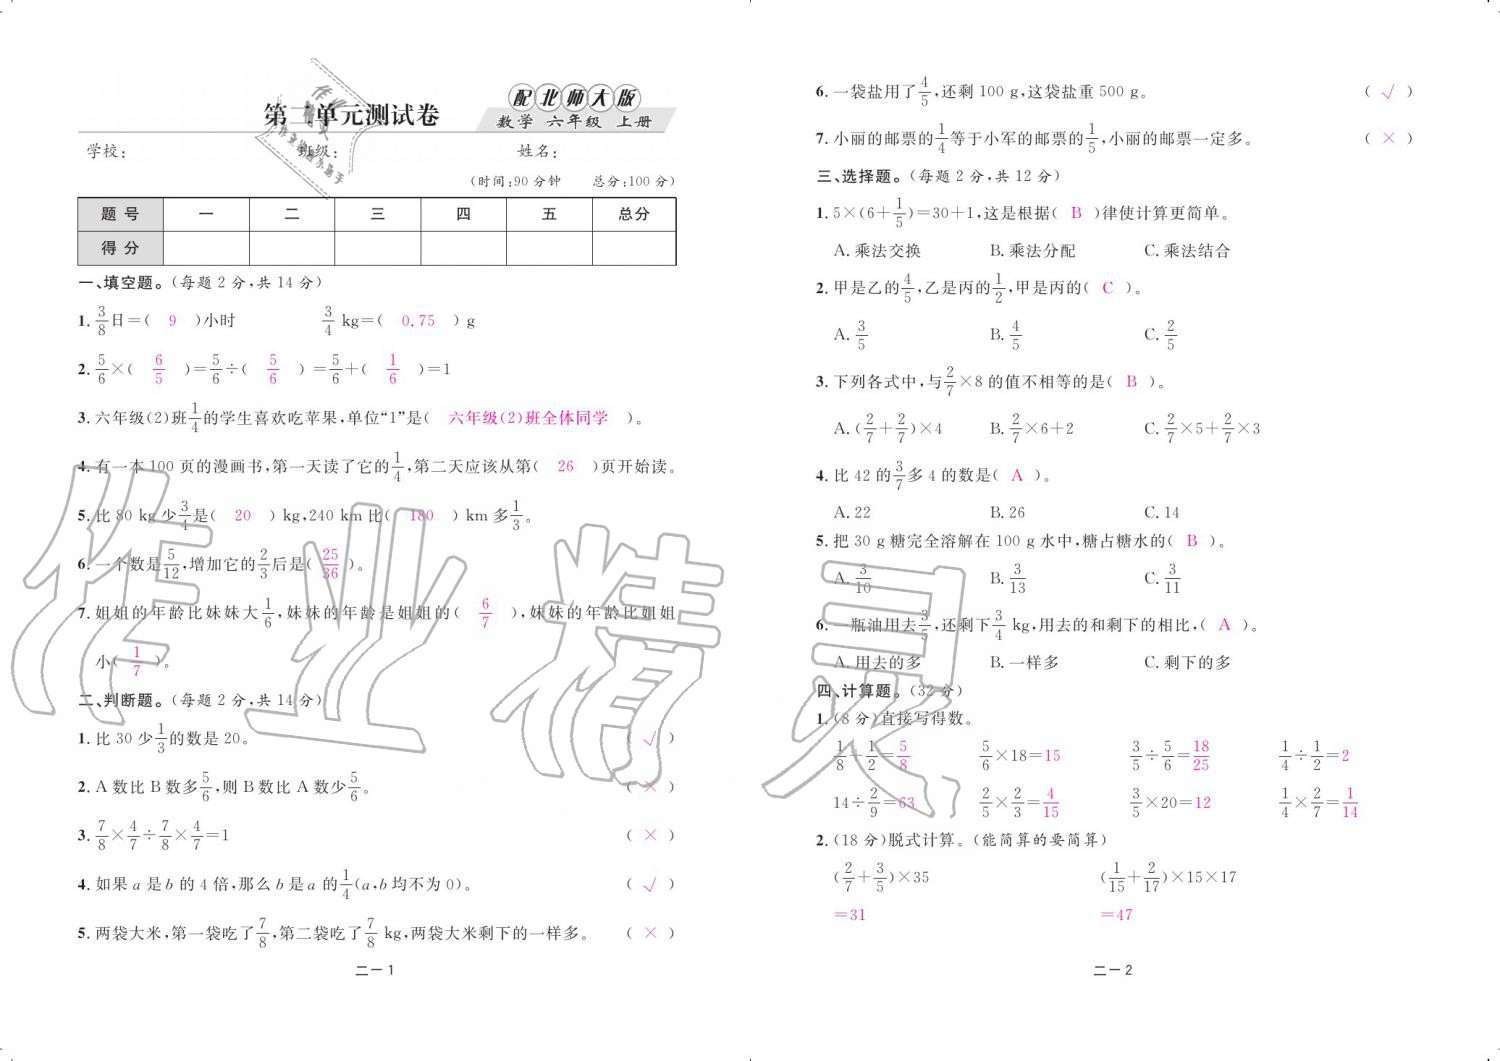 第二单元测试卷
配北师大版
数学 六年级 上册
学校: 班级: 姓名:
(时间:90分钟 总分:100分)
题号 一 二 三 四 五 总分
得分
一、填空题。(每题2分,共14分)
1. 3/8日=( 9 )小时 3/4 kg=( 0.75 )g
2. 5/6×( 6/5 )=5/6÷( 5/6 )=5/6+( 1/6 )=1
3. 六年级(2)班1/4的学生喜欢吃苹果,单位“1”是( 六年级(2)班全体同学 )。
4. 有一本100页的漫画书,第一天读了它的1/4,第二天应该从第( 26 )页开始读。
5. 比80 kg少3/4是( 20 )kg,240 km比( 180 )km多1/3。
6. 一个数是5/12,增加它的2/3后是( 25/36 )。
7. 姐姐的年龄比妹妹大1/6,妹妹的年龄是姐姐的( 6/7 ),妹妹的年龄比姐姐
小( 1/7 )。
二、判断题。(每题2分,共14分)
1. 比30少1/3的数是20。 ( √ )
2. A数比B数多5/6,则B数比A数少5/6。 ( × )
3. 7/8×4/7÷7/8×4/7=1 ( × )
4. 如果a是b的4倍,那么b是a的1/4(a,b均不为0)。 ( √ )
5. 两袋大米,第一袋吃了7/8,第二袋吃了7/8 kg,两袋大米剩下的一样多。 ( × )
二—1
6. 一袋盐用了4/5,还剩100 g,这袋盐重500 g。 ( √ )
7. 小丽的邮票的1/4等于小军的邮票的1/5,小丽的邮票一定多。 ( × )
三、选择题。(每题2分,共12分)
1. 5×(6+1/5)=30+1,这是根据( B )律使计算更简单。
A. 乘法交换 B. 乘法分配 C. 乘法结合
2. 甲是乙的4/5,乙是丙的1/2,甲是丙的( C )。
A. 3/5 B. 4/5 C. 2/5
3. 下列各式中,与2/7×8的值不相等的是( B )。
A. (2/7+2/7)×4 B. 2/7×6+2 C. 2/7×5+2/7×3
4. 比42的3/7多4的数是( A )。
A. 22 B. 26 C. 14
5. 把30 g糖完全溶解在100 g水中,糖占糖水的( B )。
A. 3/10 B. 3/13 C. 3/11
6. 一瓶油用去3/5,还剩下3/4 kg,用去的和剩下的相比,( A )。
A. 用去的多 B. 一样多 C. 剩下的多
四、计算题。(32分)
1. (8分)直接写得数。
1/8+1/2=5/8 5/6×18=15 3/5÷5/6=18/25 1/4÷1/2=2
14÷2/9=63 2/5×2/3=4/15 3/5×20=12 1/4×2/7=1/14
2. (18分)脱式计算。(能简算的要简算)
(2/7+3/5)×35 (1/15+2/17)×15×17
=31 =47
二—2
作业精灵